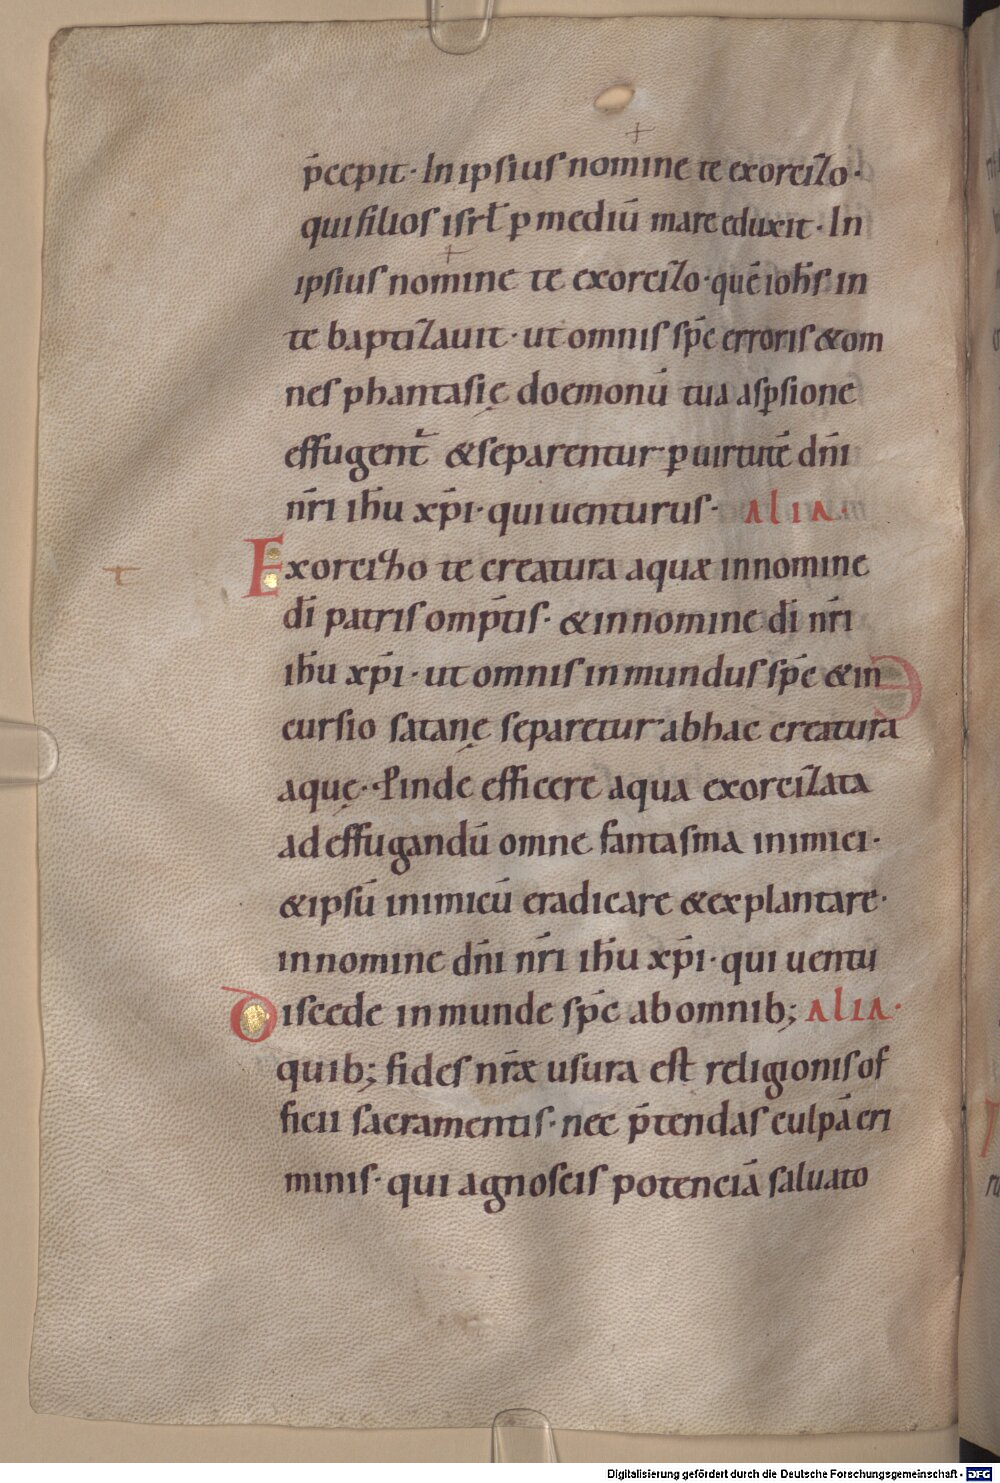 p̄cepit · In ipsius nomine te exorcizo ·
qui filios isrł p mediū mare eduxit · In
ipsius nomine te exorcizo · quē ioħs in
te baptizauit · ut omnis sp̄c erroris & om
nes phantasię doemonū tua aspsione
effugent̄ & separentur p uirtutē dn̄i
nr̄i ih̄u xp̄i · qui uenturus · ALIA ·
Exorcizo te creatura aquæ in nomine
dī patris omp̄tis · & in nomine dī nr̄i
ih̄u xp̄i · ut omnis inmundus sp̄c & in
cursio satanę separetur ab hac creatura
aquę · Pinde efficere aqua exorcizata
ad effugandū omne fantasma inimici ·
& ipsū inimicū eradicare & explantare ·
in nomine dn̄i nr̄i ih̄u xp̄i · qui uentu
Discede inmunde sp̄c ab omnib; ALIA ·
quib; fides nr̄æ usura est religionis of
ficii sacramentis · nec p̄tendas culpā cri
minis · qui agnoscis potenciā saluato
Digitalisierung gefördert durch die Deutsche Forschungsgemeinschaft - DFG